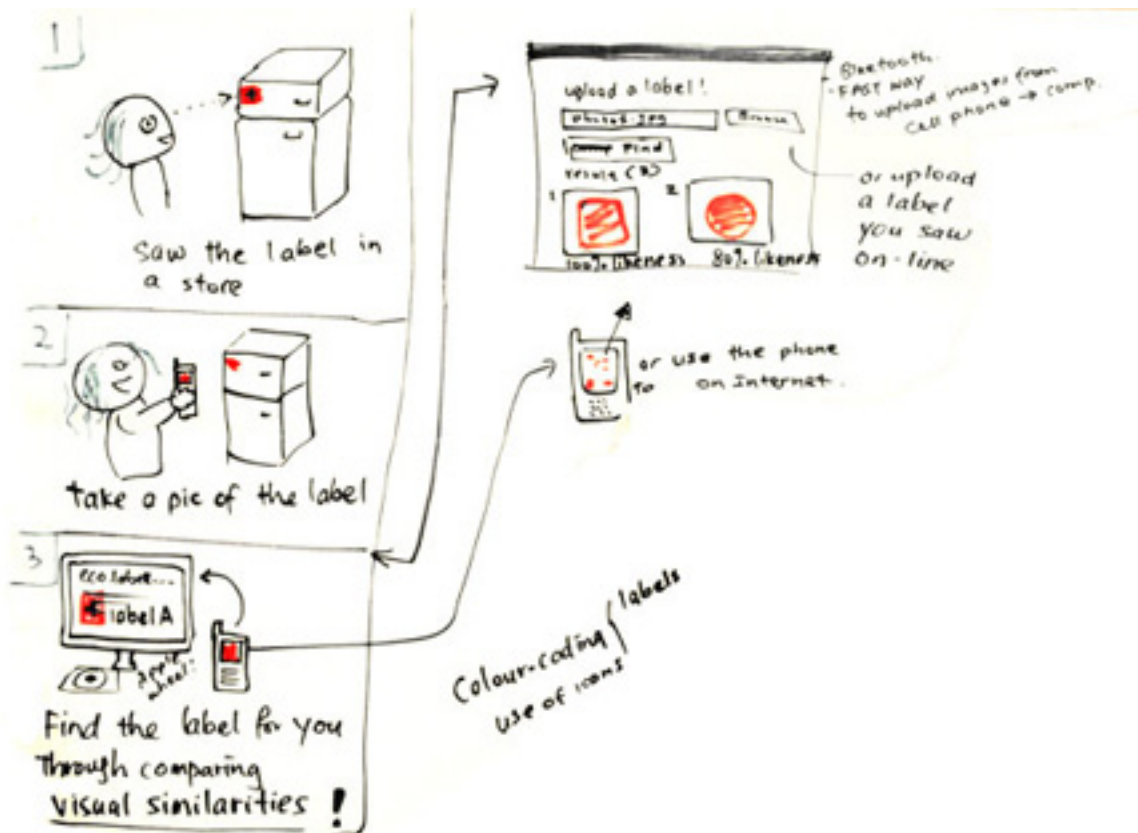 1
Saw the label in
a store
2
take a pic of the label
3
eco label...
label A
Find the label for you
Through comparing
visual similarities !
upload a label!
photo1.jpg
Browse
Find
result (2)
1
2
100% likeness
80% likeness
- Bluetooth.
- FAST way
to upload images from
cell phone → comp.
or upload
a label
you saw
on-line
or use the phone
to on Internet.
Colour-coding
use of icons
labels